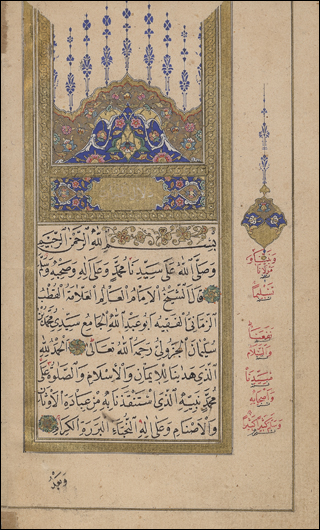 بسم الله الرحمن الرحيم
وصلى الله على سيدنا محمد وعلى اله وصحبه وسلم
قال الشيخ الامام العالم العلامة القطب
الزماني الفقيه ابو عبد الله الجامع سيدي محمد بن
سليمان الجزولي رحمه الله تعالى الحمد لله
الذي هدينا للايمان والاسلام والصلوة على
محمد نبيه الذي استنقذنا به من عبادة الاوثان
والاصنام وعلى اله النجباء البررة الكرام
وبعد
مولانا
تسليما
والسلام
سيدنا
واصحابه